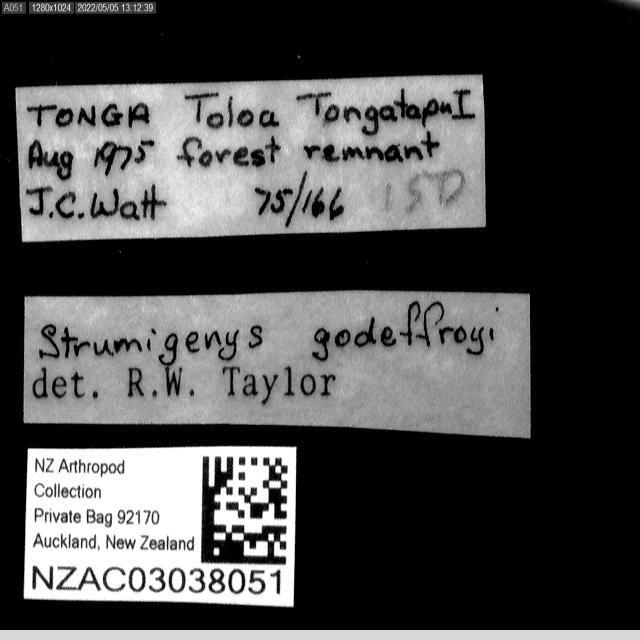 A051 1280x1024 2022/05/05 13:12:39
TONGA Toloa Tongatapu I
Aug 1975 forest remnant
J.C. Watt 75/166 15D
Strumigenys godeffroyi
det. R.W. Taylor
NZ Arthropod
Collection
Private Bag 92170
Auckland, New Zealand
NZAC03038051